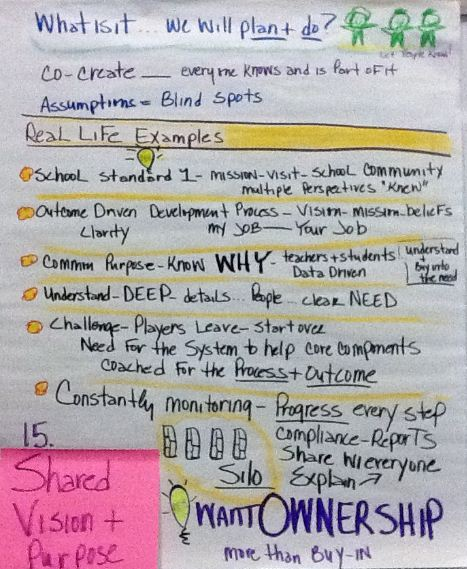 What is it... we will plan + do?
Let People Know!
Co-create ___ everyone knows and is part of it
Assumptions = Blind Spots
Real Life Examples
School Standard 1 - mission - visit - school community
multiple Perspectives "Knew"
Outcome Driven Development Process - Vision - mission - beliefs
Clarity my JOB — Your Job
Common Purpose - Know WHY - teachers + students
Data Driven
understand
Buy into
the need
Understand - DEEP - details... People... clear NEED
Challenge - Players Leave - start over
Need For the System to help core components
Coached for the Process + Outcome
Constantly monitoring - Progress every step
Compliance - Reports
Share w/ everyone
Explain →
Silo
15.
Shared
Vision +
Purpose
WANT OWNERSHIP
more than Buy-IN